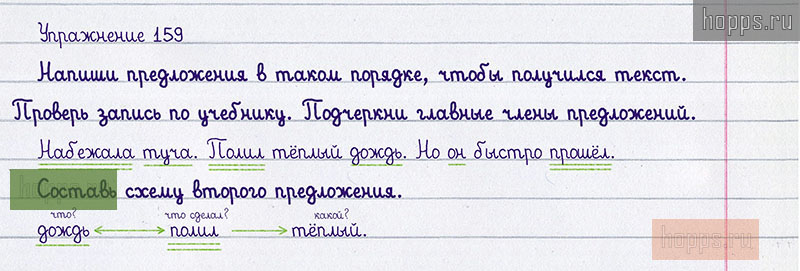 hopps.ru
Упражнение 159
Напиши предложения в таком порядке, чтобы получился текст.
Проверь запись по учебнику. Подчеркни главные члены предложений.
Набежала туча. Полил тёплый дождь. Но он быстро прошёл.
Составь схему второго предложения.
что? что сделал? какой?
дождь полил тёплый.
hopps.ru